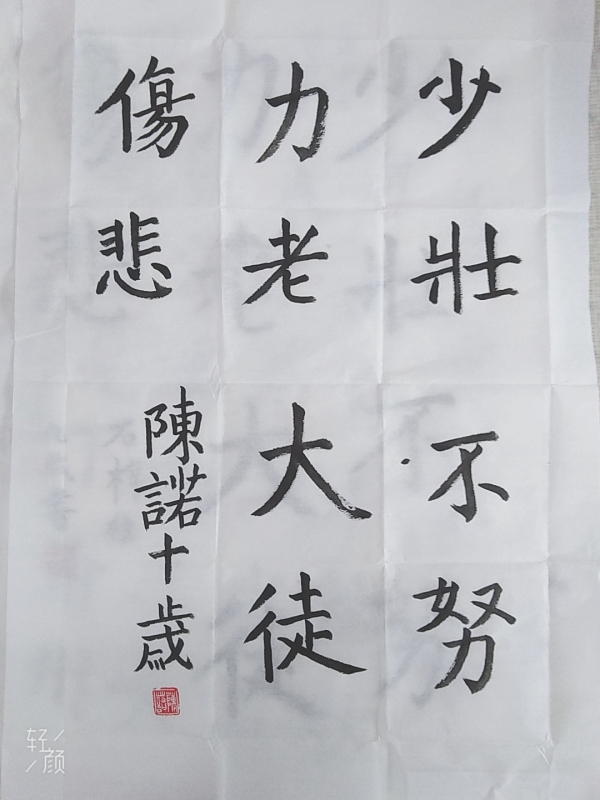 少壯不努
力老大徒
傷悲
陳諾十歲
轻颜